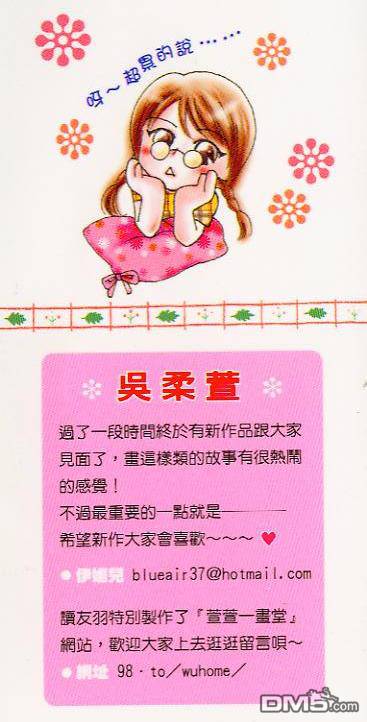 呀～超累的說……
吳柔萱
過了一段時間終於有新作品跟大家
見面了，畫這樣類的故事有很熱鬧
的感覺！
不過最重要的一點就是————
希望新作大家會喜歡～～～♥
伊媚兒 blueair37@hotmail.com
讀友羽特別製作了『萱萱一畫堂』
網站，歡迎大家上去逛逛留言唄～
網址 98．to／wuhome／
DM5.com